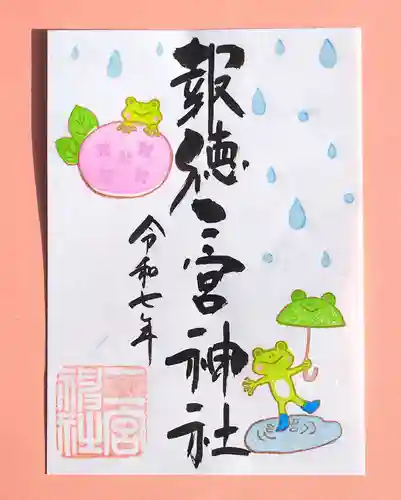 報徳二宮神社
令和七年
二宮
神社